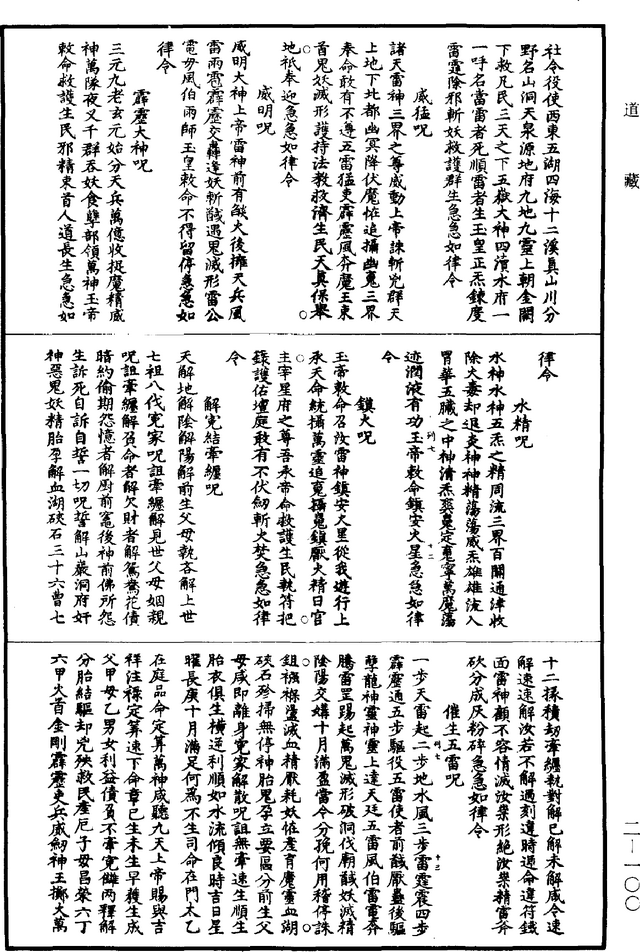 道藏
社令役使西東五湖四海十二溪真山川分
野名山洞天泉源地府九地九靈上朝金闕
下救凡民三天之下五嶽大神四瀆水府一
一呼名當雷者死順雷者生玉皇正炁鍊度
雷霆除邪斬妖救護群生急急如律令
威猛呪
諸天雷神三界之尊威動上帝誅斬兇群天
上地下北都幽冥降伏魔怪追攝幽冤三界
奉命敢有不尊五雷猛吏霹靂風奔魔王束
首鬼妖滅形護持法教救濟生民天真保舉
地祇奉迎急急如律令
威明呪
威明大神上帝雷神前有燄火後擁天兵風
雷雨雹霹靂交轟逢妖斬馘遇鬼滅形雷公
電母風伯雨師玉皇敕命不得留停急急如
律令
霹靂大神呪
三元九老玄元始分天兵萬億收捉魔精威
神萬隊夜叉千群吞妖食孽部領萬神玉帝
敕命救護生民邪精束首人道長生急急如
律令
水精呪
水神水神五炁之精周流三界百關通津收
除火毒却退炎神神精蕩蕩威炁雄雄流入
胃華五臟之中神清炁爽魂定魄寧萬魔蕩
迹潤液有功玉帝敕命鎮安火星急急如律
令
鎮火呪
玉帝敕命召汝雷神鎮安火星從我遊行上
承天命統攝萬靈追魂攝魄鎮厭火精日宮
主宰星府之尊吾承帝命救護生民執符把
籙護佑壇庭敢有不伏劒斬火焚急急如律
令
解冤結牽纏呪
天解地解陰解陽解前生父母執吝解上世
七祖八代冤家呪詛牽纏解見世父母姻親
呪詛牽纏解負命者解欠財者解鴛鴦花債
暗約偷期怨憶者解厨前竈後神前佛所怨
生訴死自訴自誓一切呪誓解山嚴洞府奸
神惡鬼妖精胎孕解血湖硤石三十六曹七
十二掾積刼牽纏執對解已解未解咸令速
解速速解汝若不解過刻違時遒命違符鐵
面雷神顧不容情滅汝業形絕汝業精雷斧
砍分成灰粉碎急急如律令
催生五雷呪
一步天雷起二步地水風三步雷霆震四步
霹靂通五步驅役五雷使者前馘厭蠱後驅
孽龍神靈神靈上達天廷五雷風伯雷電奔
騰雷罡踢起萬鬼滅形破洞伐廟馘妖滅精
陰陽交媾十月滿盈當令分挽何用稽停誅
鉏襁褓盪滅血精厭耗妖怪產育魔靈血湖
硤石殄掃無停神胎鬼孕立要區分前生父
母咸即離身冤家解散呪詛無牽速生順生
胎衣俱生橫逆利順如水流傾良時吉日星
曜長庚十月滿足何為不生司命在門太乙
在庭品命定算萬神咸聽九天上帝賜與吉
祥注祿定算速下命章已生未生早穫生成
父甲母乙男女利益債負不牽寃雠兩釋解
分胎結驅却兇殃救民產厄子母昌榮六丁
六甲火首金剛霹靂吏兵威劒神王擲火萬
二—一〇〇